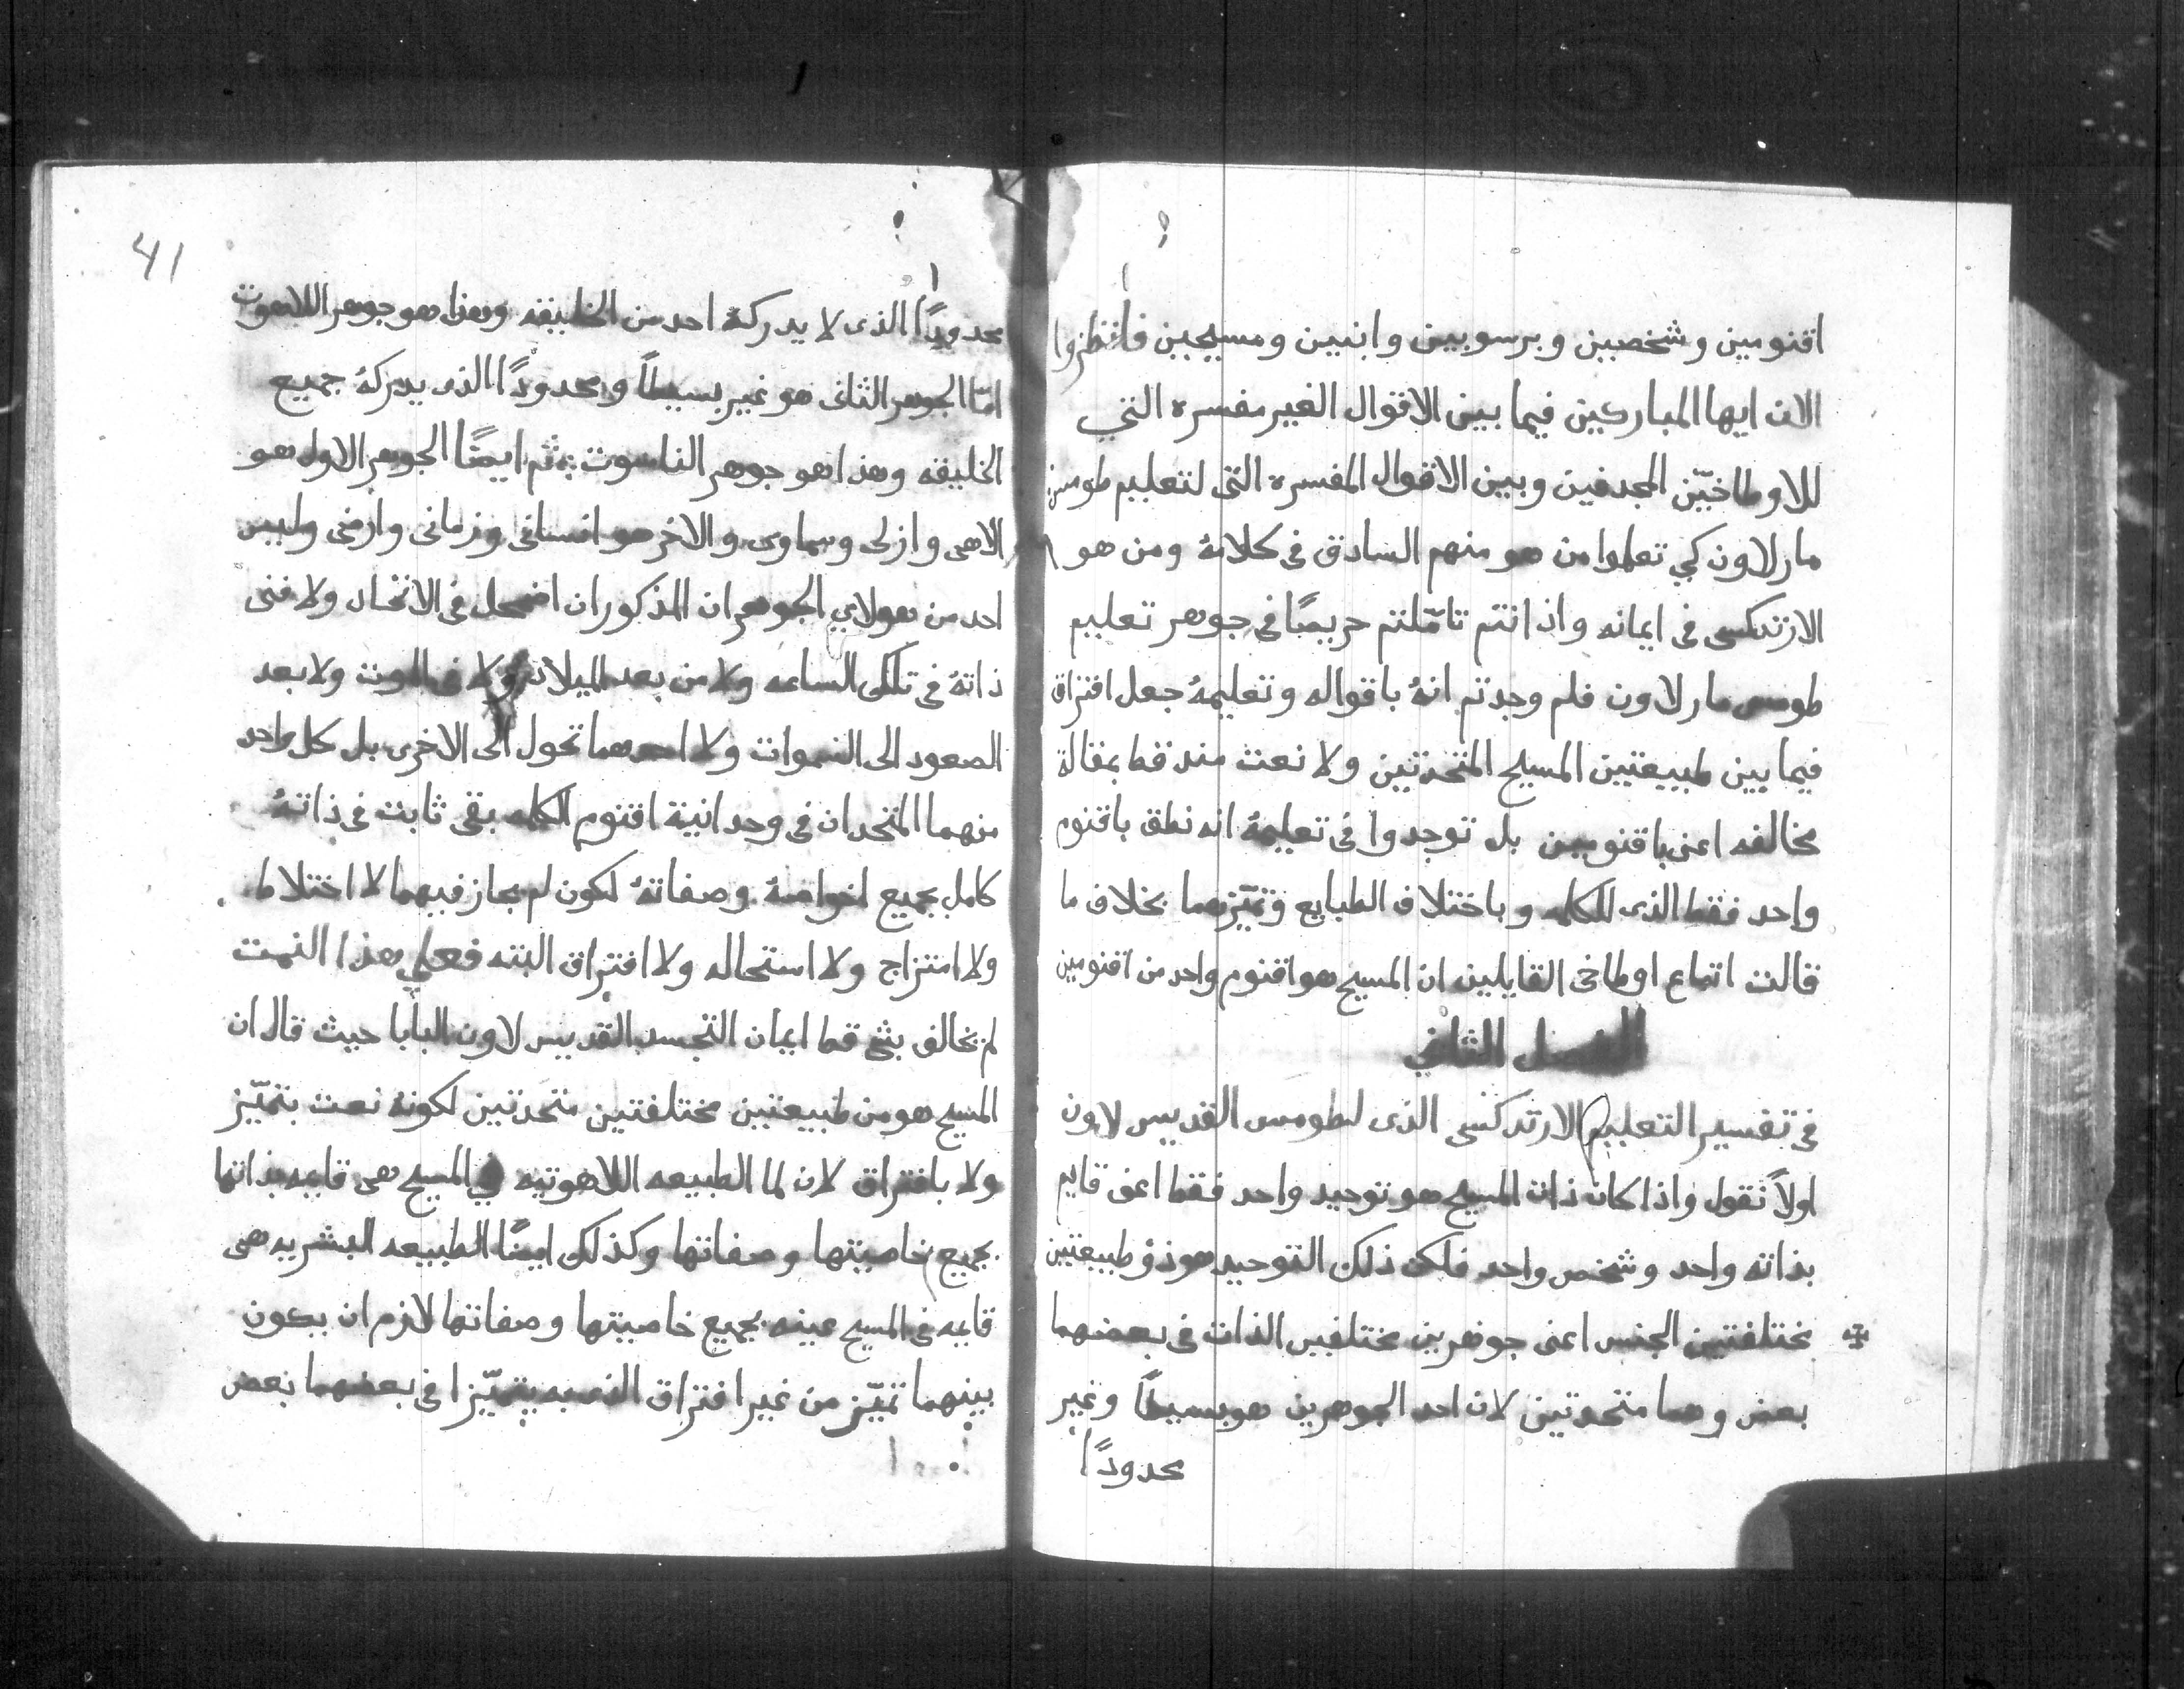 اقنومين وشخصين وبرسوبين وابنين ومسيحين فانظروا
الان ايها المباركين فيما بين الاقوال الغير مفسره التي
للاوطاخيّن المجدفين وبين الاقوال المفسره التى لتعليم طومس
مار لاون كي تعلموا من هو منهم السادق فى كلامهُ ومن هو
الارتدكسى فى ايمانه واذ انتم تامّلتم حريصًا فى جوهر تعليم
طومس مار لاون فلم وجدتم انهُ باقواله وتعليمهُ جعل افتراق
فيما بين طبيعتين المسيح المتحدتين ولا نعت منذ قط بمقالة
مخالفه اعنى باقنومين بل توجدوا فى تعليمهُ انه نطق باقنوم
واحد فقط الذى للكلمه وباختلاف الطبايع وتميّزهما بخلاف ما
قالت اتباع اوطاخى القايلين ان المسيح هو اقنوم واحد من اقنومين
الفصل الثاني
فى تفسير التعليم الارتدكسى الذى لطومس القديس لاون
اولاً نقول واذا كان ذات المسيح هو توحيد واحد فقط اعنى قايم
بذاته واحد وشخص واحد فلكن ذلك التوحيد هو ذو طبيعتين
مختلفتين الجنس اعنى جوهرين مختلفين الذات فى بعضهما
بعض وهما متحدتين لان احد الجوهرين هو بسيطًا وغير
محدودًا
41
محدودًا الذى لا يدركهُ احد من الخليقه وهذا هو جوهر اللاهوت
امّا الجوهر الثانى هو غير بسيطًا ومحدودًا الذى يدركهُ جميع
الخليقه وهذا هو جوهر الناسوت ثم ايضًا الجوهر الاول هو
الاهى وازلى وسماوى والاخر هو انسانى وزمانى وارضى وليس
احد من هولاي الجوهران المذكوران اضمحل فى الاتحاد ولا فنى
ذاتهُ فى تلك الساعه ولا من بعد الميلاد ولا فى الموت ولا بعد
الصعود الى السموات ولا احدهما تحول الى الاخرى بل كل واحد
منهما المتحدان فى وحدانية اقنوم الكلمه بقى ثابت فى ذاتهُ
كامل بجميع اخواصهُ وصفاتهُ لكون لم يجاز فيهما لا اختلاط
ولا امتزاج ولا استحاله ولا افتراق البته فعلي هذا النمت
لم يخالف بشي قط ايمان التجسد القديس لاون البابا حيث قال ان
المسيح هو من طبيعتين مختلفتين متحدتين لكونهُ نعت بتميّز
ولا بافتراق لان لما الطبيعه اللاهوتيه في المسيح هى قايمه بذاتها
بجميع خاصيتها وصفاتها وكذلك ايضًا الطبيعه البشريه هى
قايمه فى المسيح عينه بجميع خاصيتها وصفاتها لازم ان يكون
بينهما تميّز من غير افتراق الذى به يتميّزا فى بعضهما بعض